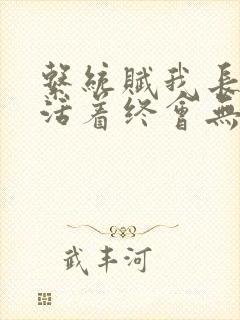 繫統賦我長
活着终會無
武丰河